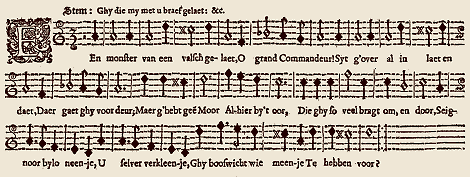 Stem: Ghy die my met u braef gelaet: &c.
En monster van een valsch ge-laet, O grand Commandeur! Syt g'over al in laet en
daet, Daer gaet ghy voor deur; Maer g'hebt geē Moor Al-hier by't oor, Die ghy so veel bragt om, en door, Seig-
noor bylo neen-je, U selver verkleen-je, Ghy booswicht wie meen-je Te hebben voor?